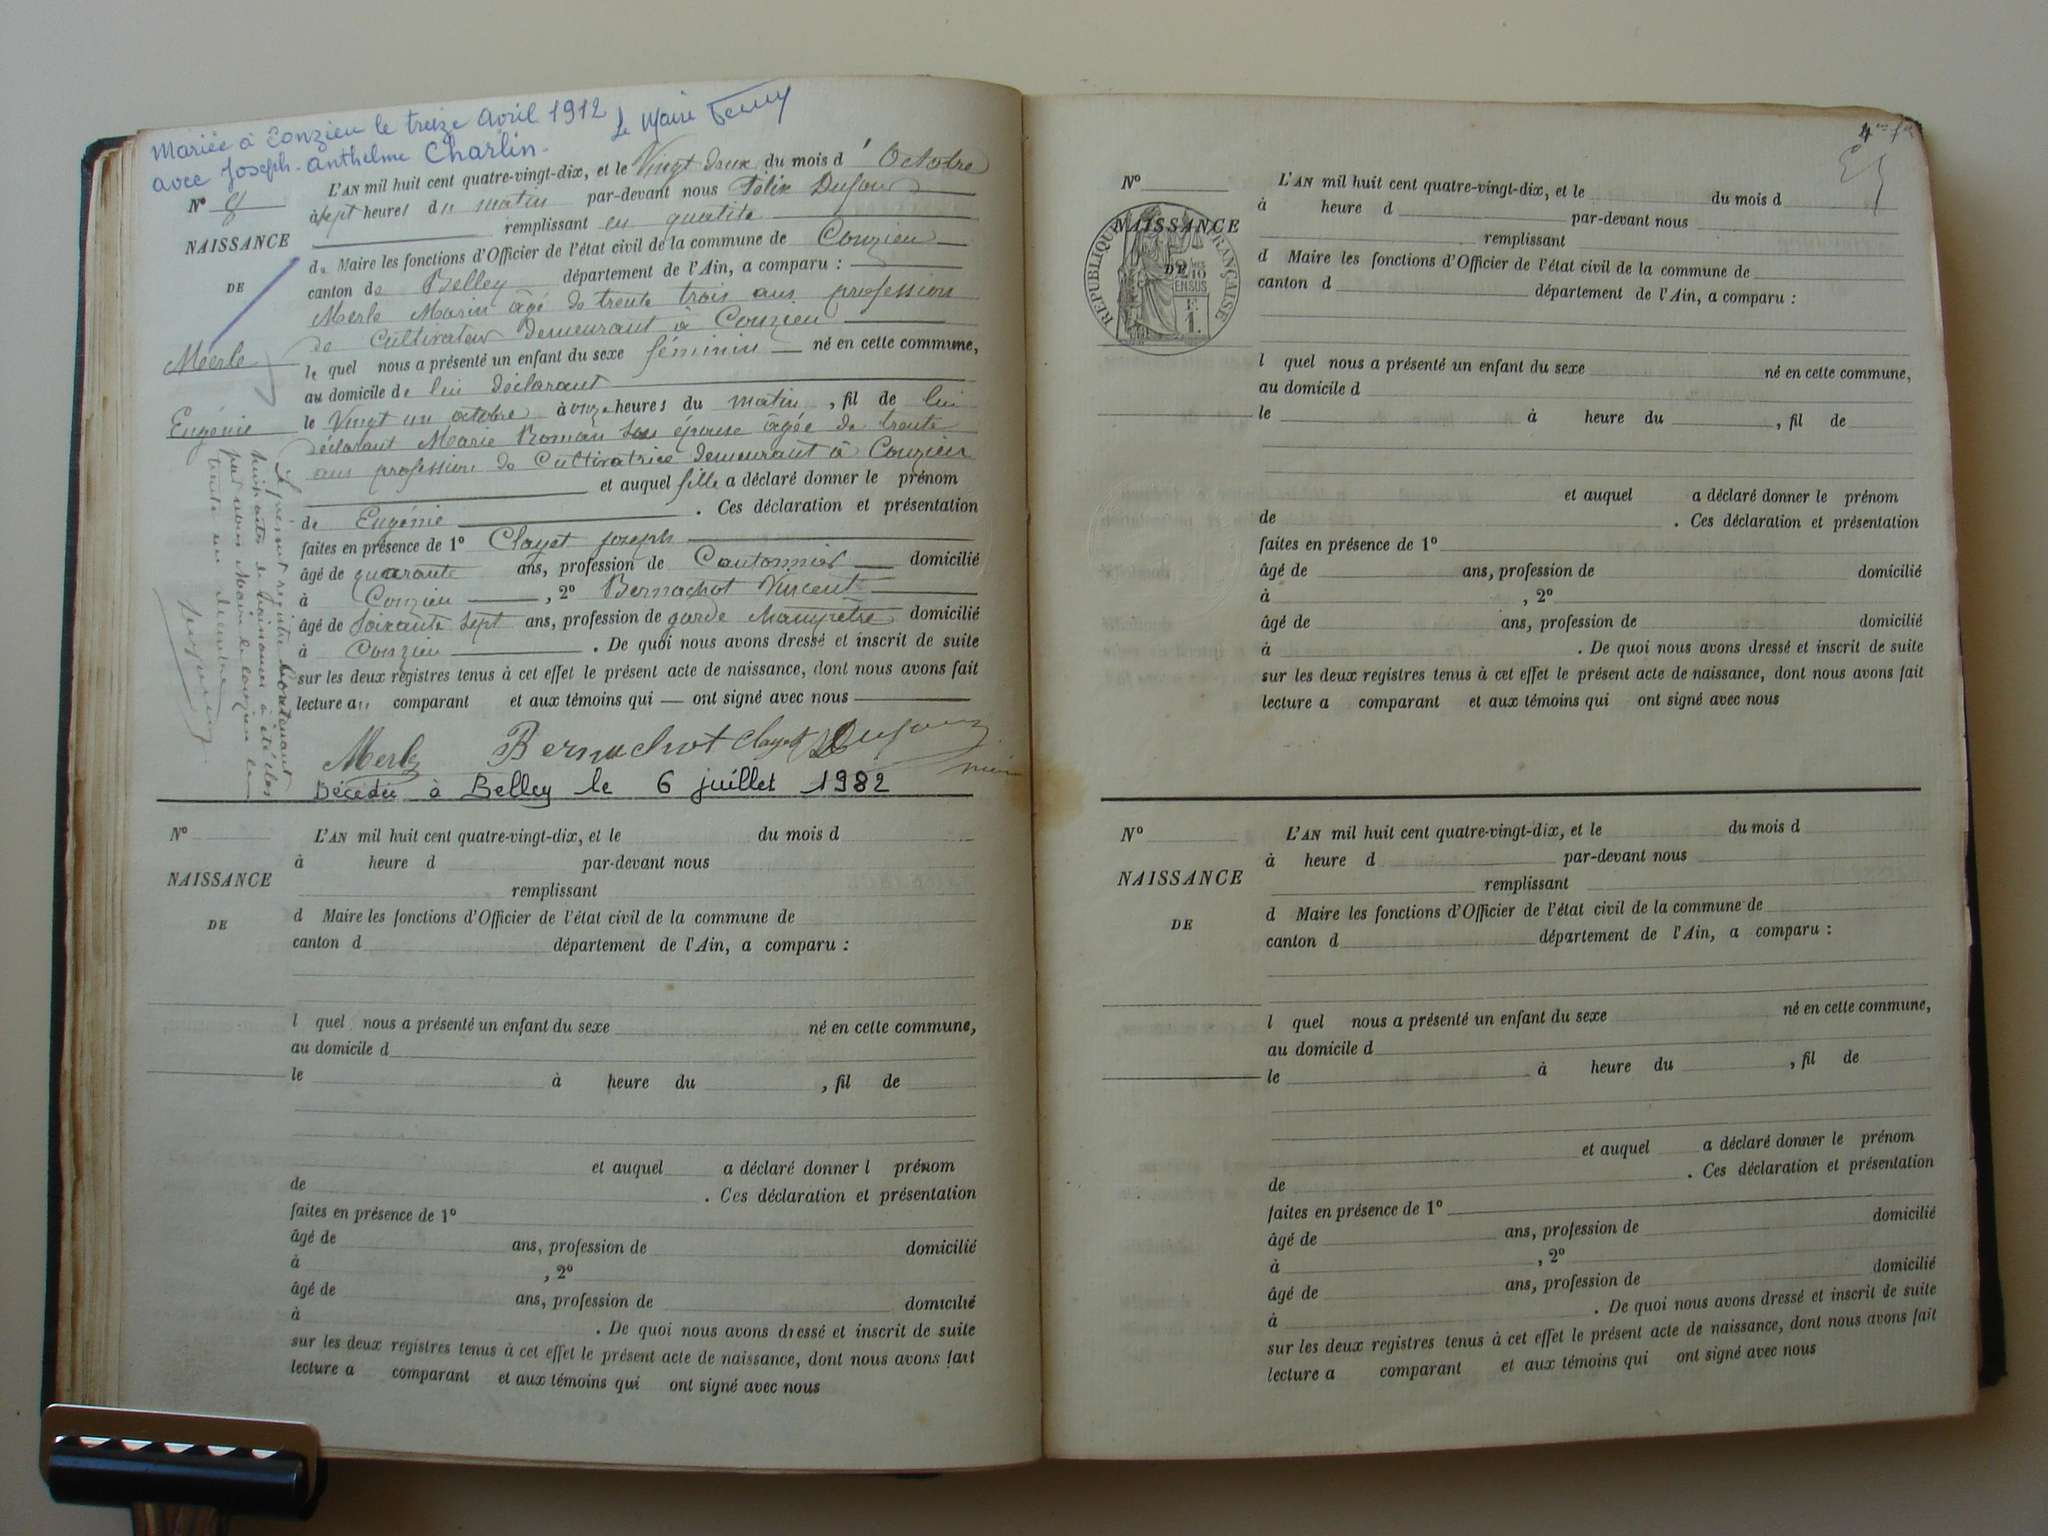 Mariée à Conzieu le treize Avril 1912 Le Maire
avec Joseph-Anthelme Charlin.
L'AN mil huit cent quatre-vingt-dix, et le Vingt deux du mois d'Octobre
à sept heures du matin par-devant nous Félix Dufour
remplissant en qualité
du Maire les fonctions d'Officier de l'état civil de la commune de Conzieu
canton de Belley département de l'Ain, a comparu :
Merle Marin âgé de trente trois ans profession
de Cultivateur demeurant à Conzieu
le quel nous a présenté un enfant du sexe féminin né en cette commune,
au domicile de lui déclarant
le Vingt un octobre à onze heures du matin, fil de lui
déclarant Marie Roman son épouse âgée de trente
ans profession de Cultivatrice demeurant à Conzieu
et auquel fille a déclaré donner le prénom
de Eugénie . Ces déclaration et présentation
faites en présence de 1º Clayet Joseph
âgé de quarante ans, profession de Cantonnier domicilié
à Conzieu , 2º Bernachot Vincent
âgé de soixante sept ans, profession de garde champêtre domicilié
à Conzieu . De quoi nous avons dressé et inscrit de suite
sur les deux registres tenus à cet effet le présent acte de naissance, dont nous avons fait
lecture au comparant et aux témoins qui — ont signé avec nous
Merle Bernachot Clayet Dufour
maire
Décédée à Belley le 6 juillet 1982
Nº 8
NAISSANCE
DE
Merle
Eugénie
Le présent registre contenant
huit actes de naissances à été clos
par nous Maire de Conzieu le
trente un décembre
Nº
NAISSANCE
DE
L'AN mil huit cent quatre-vingt-dix, et le du mois d
à heure d par-devant nous
remplissant
d Maire les fonctions d'Officier de l'état civil de la commune de
canton d département de l'Ain, a comparu :
l quel nous a présenté un enfant du sexe né en cette commune,
au domicile d
le à heure du , fil de
et auquel a déclaré donner l prénom
de . Ces déclaration et présentation
faites en présence de 1º
âgé de ans, profession de domicilié
à , 2º
âgé de ans, profession de domicilié
à . De quoi nous avons dressé et inscrit de suite
sur les deux registres tenus à cet effet le présent acte de naissance, dont nous avons fait
lecture a comparant et aux témoins qui ont signé avec nous
Nº
NAISSANCE
DE
RÉPUBLIQUE FRANÇAISE
2/10
EN SUS
F.
1.
L'AN mil huit cent quatre-vingt-dix, et le du mois d
à heure d par-devant nous
remplissant
d Maire les fonctions d'Officier de l'état civil de la commune de
canton d département de l'Ain, a comparu :
l quel nous a présenté un enfant du sexe né en cette commune,
au domicile d
le à heure du , fil de
et auquel a déclaré donner le prénom
de . Ces déclaration et présentation
faites en présence de 1º
âgé de ans, profession de domicilié
à , 2º
âgé de ans, profession de domicilié
à . De quoi nous avons dressé et inscrit de suite
sur les deux registres tenus à cet effet le présent acte de naissance, dont nous avons fait
lecture a comparant et aux témoins qui ont signé avec nous
Nº
NAISSANCE
DE
L'AN mil huit cent quatre-vingt-dix, et le du mois d
à heure d par-devant nous
remplissant
d Maire les fonctions d'Officier de l'état civil de la commune de
canton d département de l'Ain, a comparu :
l quel nous a présenté un enfant du sexe né en cette commune,
au domicile d
le à heure du , fil de
et auquel a déclaré donner le prénom
de . Ces déclaration et présentation
faites en présence de 1º
âgé de ans, profession de domicilié
à , 2º
âgé de ans, profession de domicilié
à . De quoi nous avons dressé et inscrit de suite
sur les deux registres tenus à cet effet le présent acte de naissance, dont nous avons fait
lecture a comparant et aux témoins qui ont signé avec nous